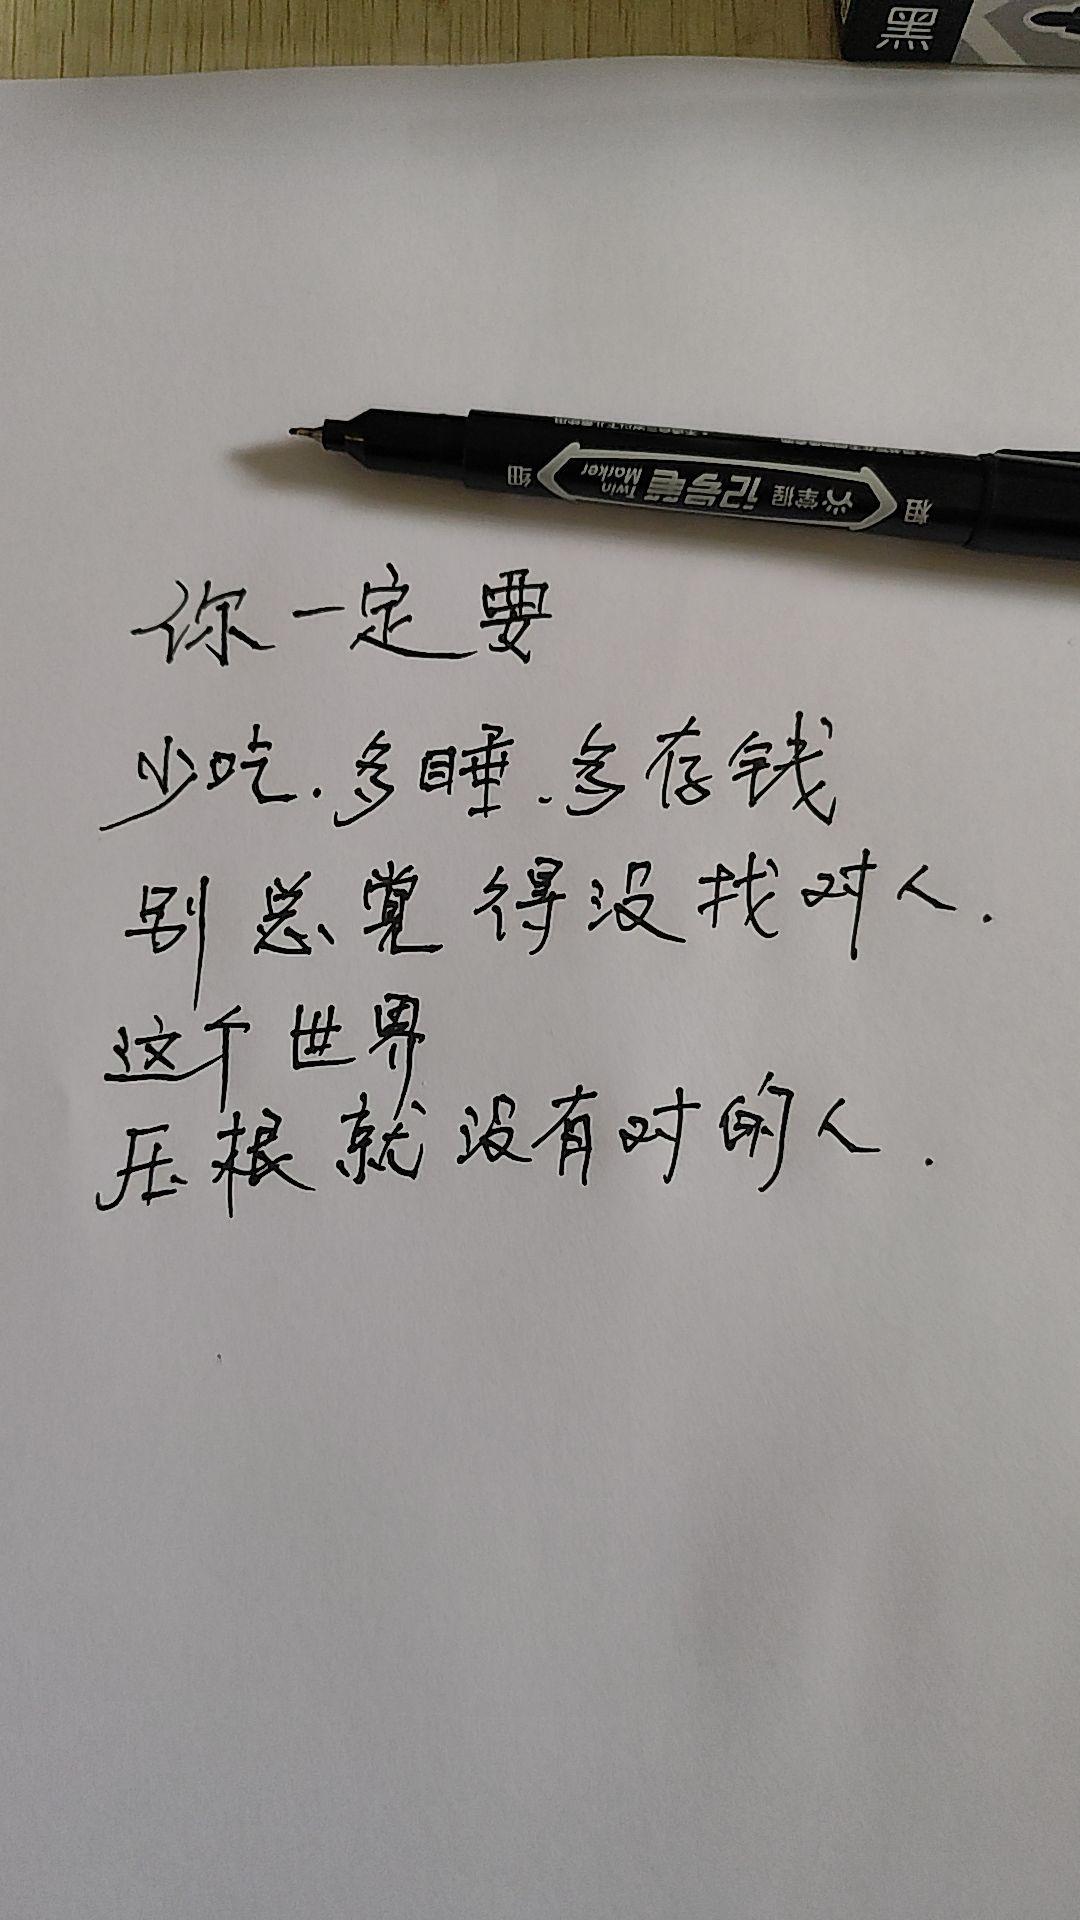 黑
细 Twin Marker 记号笔 掌握 粗
你一定要
少吃.多睡.多存钱
别总觉得没找对人.
这个世界
压根就没有对的人.